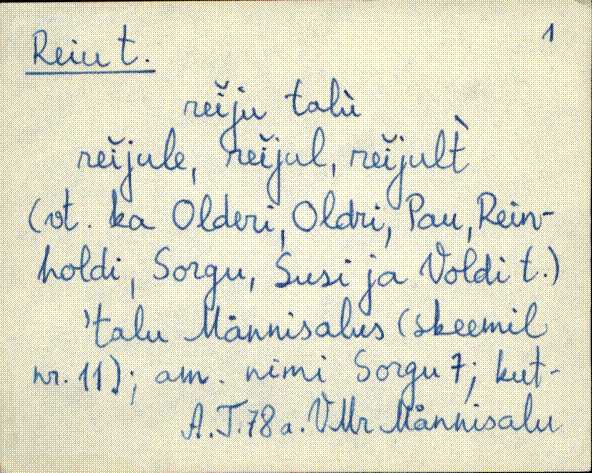 1
Reiu t.
reĭju talù
reĭjule, reĭjul, reĭjult̀
(vt. ka Olderi, Oldri, Pau, Rein-
holdi, Sorgu, Susi ja Voldi t.)
'talu Männisalus (skeemil
nr. 11); am. nimi Sorgu 7; kut-
A.T.78a. VMr Männisalu